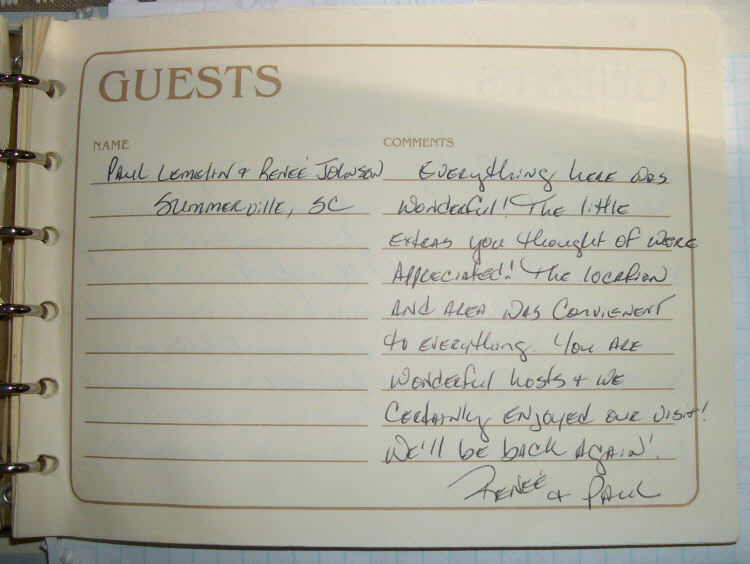 GUESTS
NAME
COMMENTS
Paul Lemelin & Reneé Johnson
Summerville, SC
Everything here was
wonderful! The little
extras you thought of were
appreciated! The location
and area was convienent
to everything. You are
wonderful hosts & we
certainly enjoyed our visit!
We'll be back again!
Reneé & Paul